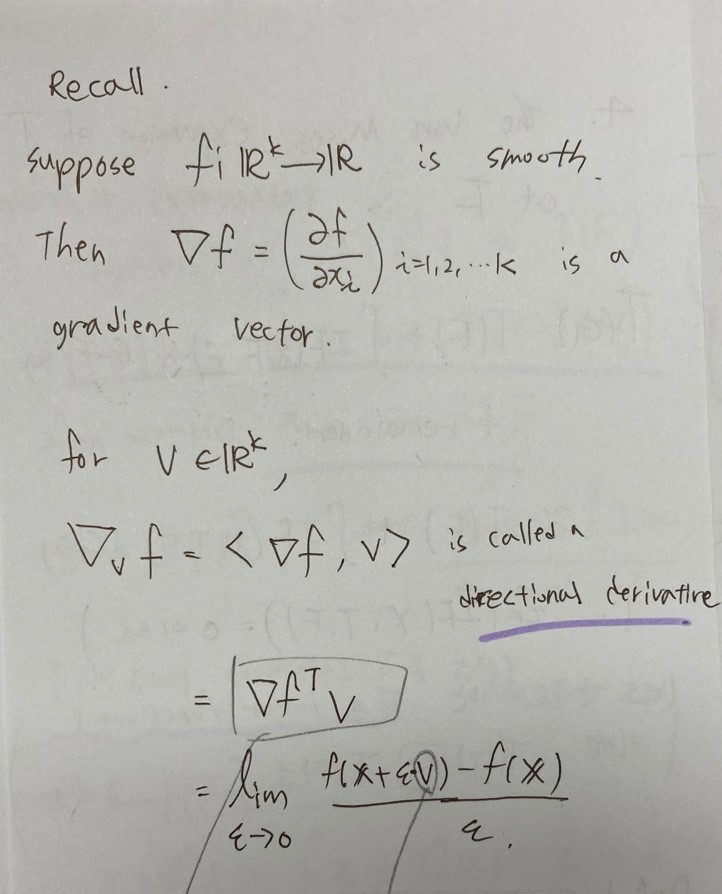 Recall.
suppose f: ℝ^k → ℝ is smooth.
Then ∇f = (∂f/∂x_i)_{i=1,2,...k} is a
gradient vector.
for v ∈ ℝ^k,
∇_v f = <∇f, v> is called a
directional derivative
= ∇f^T v
= lim_{ε→0} (f(x+ε·v) - f(x)) / ε.